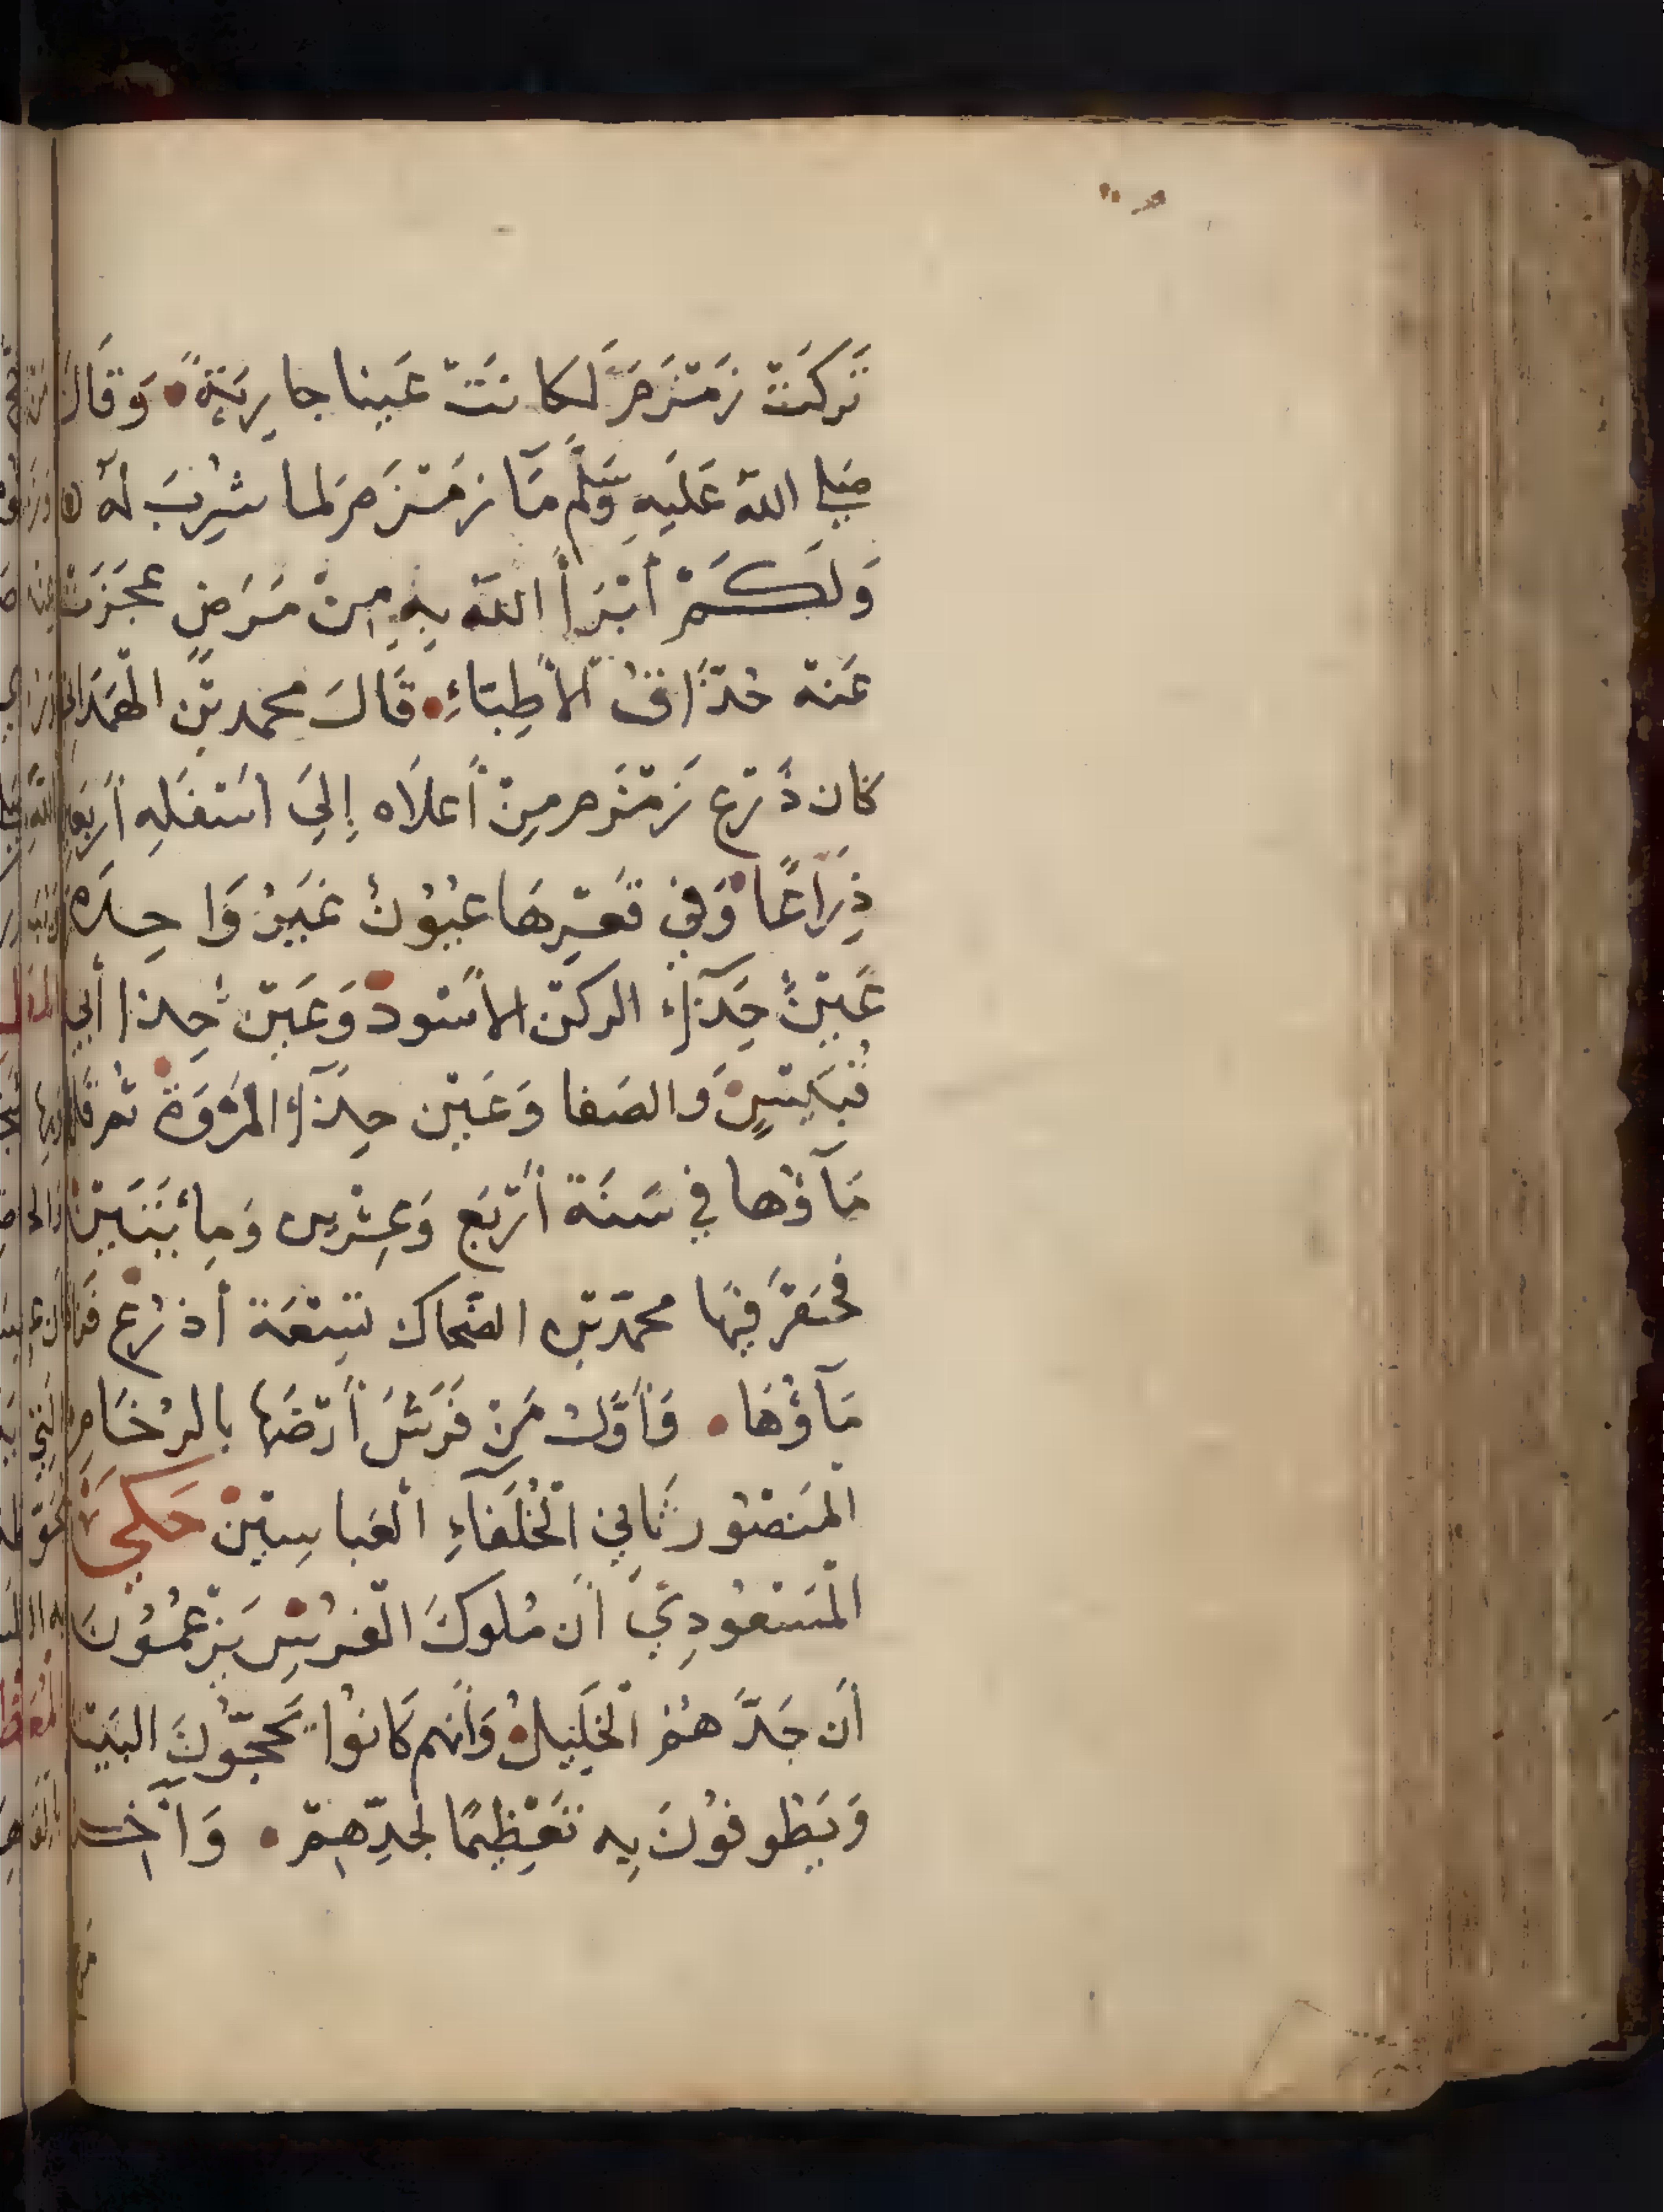 تَركَتْ زَمْزَمَ لَكانَتْ عَيناً جارِيَةً وَقَالَ
صَلى اللهُ عَلَيهِ وَسَلَّم مَآ زَمْزَمَ لما شُرِبَ لَهُ
وَلَكَمْ أَبْرَأَ اللهُ بِهِ مِنْ مَرَضٍ عَجَزَتْ
عَنهُ حُذّاقُ الأَطِبّاءِ قَالَ محمد بْن الْهَمَدانى
كان ذَرْع زَمْزَمَ مِنْ أَعلَاه إِلىَ اسْفَلِهِ أَربَعِين
ذِرَاعًا وَفي قَعْرِهَا عُيُونٌ غَيرُ وَاحِدَةٍ
عَيْنٌ حِذَآءَ الركْن الأسْود وَعَيْن حِذا أَبي
قُبَيْسٍ وَالصَفا وَعَيْن حِذَآءَ المَرْوَة ثم قَل
مَآؤُها في سَنَة أَرْبَع وَعِشْرين وَمِائَتَيْن
فحَفَرَ فيهَا محمّد بْن الضحّاك تِسْعَة أَذرُع فَزادَ
مَآؤُهَا وَأَوَّلُ مَنْ فَرَشَ أَرْضَهَا بالرُخَامِ
المَنصُور ثَانِي الْخُلَفآءِ الْعَباسِيّيْن حَكَى
الْمَسْعُودِيّ أَن مُلوكَ الْفُرْسِ يَزْعُمُونَ
أَن جَدَّهُمُ الْخَلِيلُ وَأَنهم كَانوُا يَحُجّونَ البَيْتَ
وَيَطُوفُونَ بِه تَعْظِيمًا لجَدِّهِمْ وَآخِر